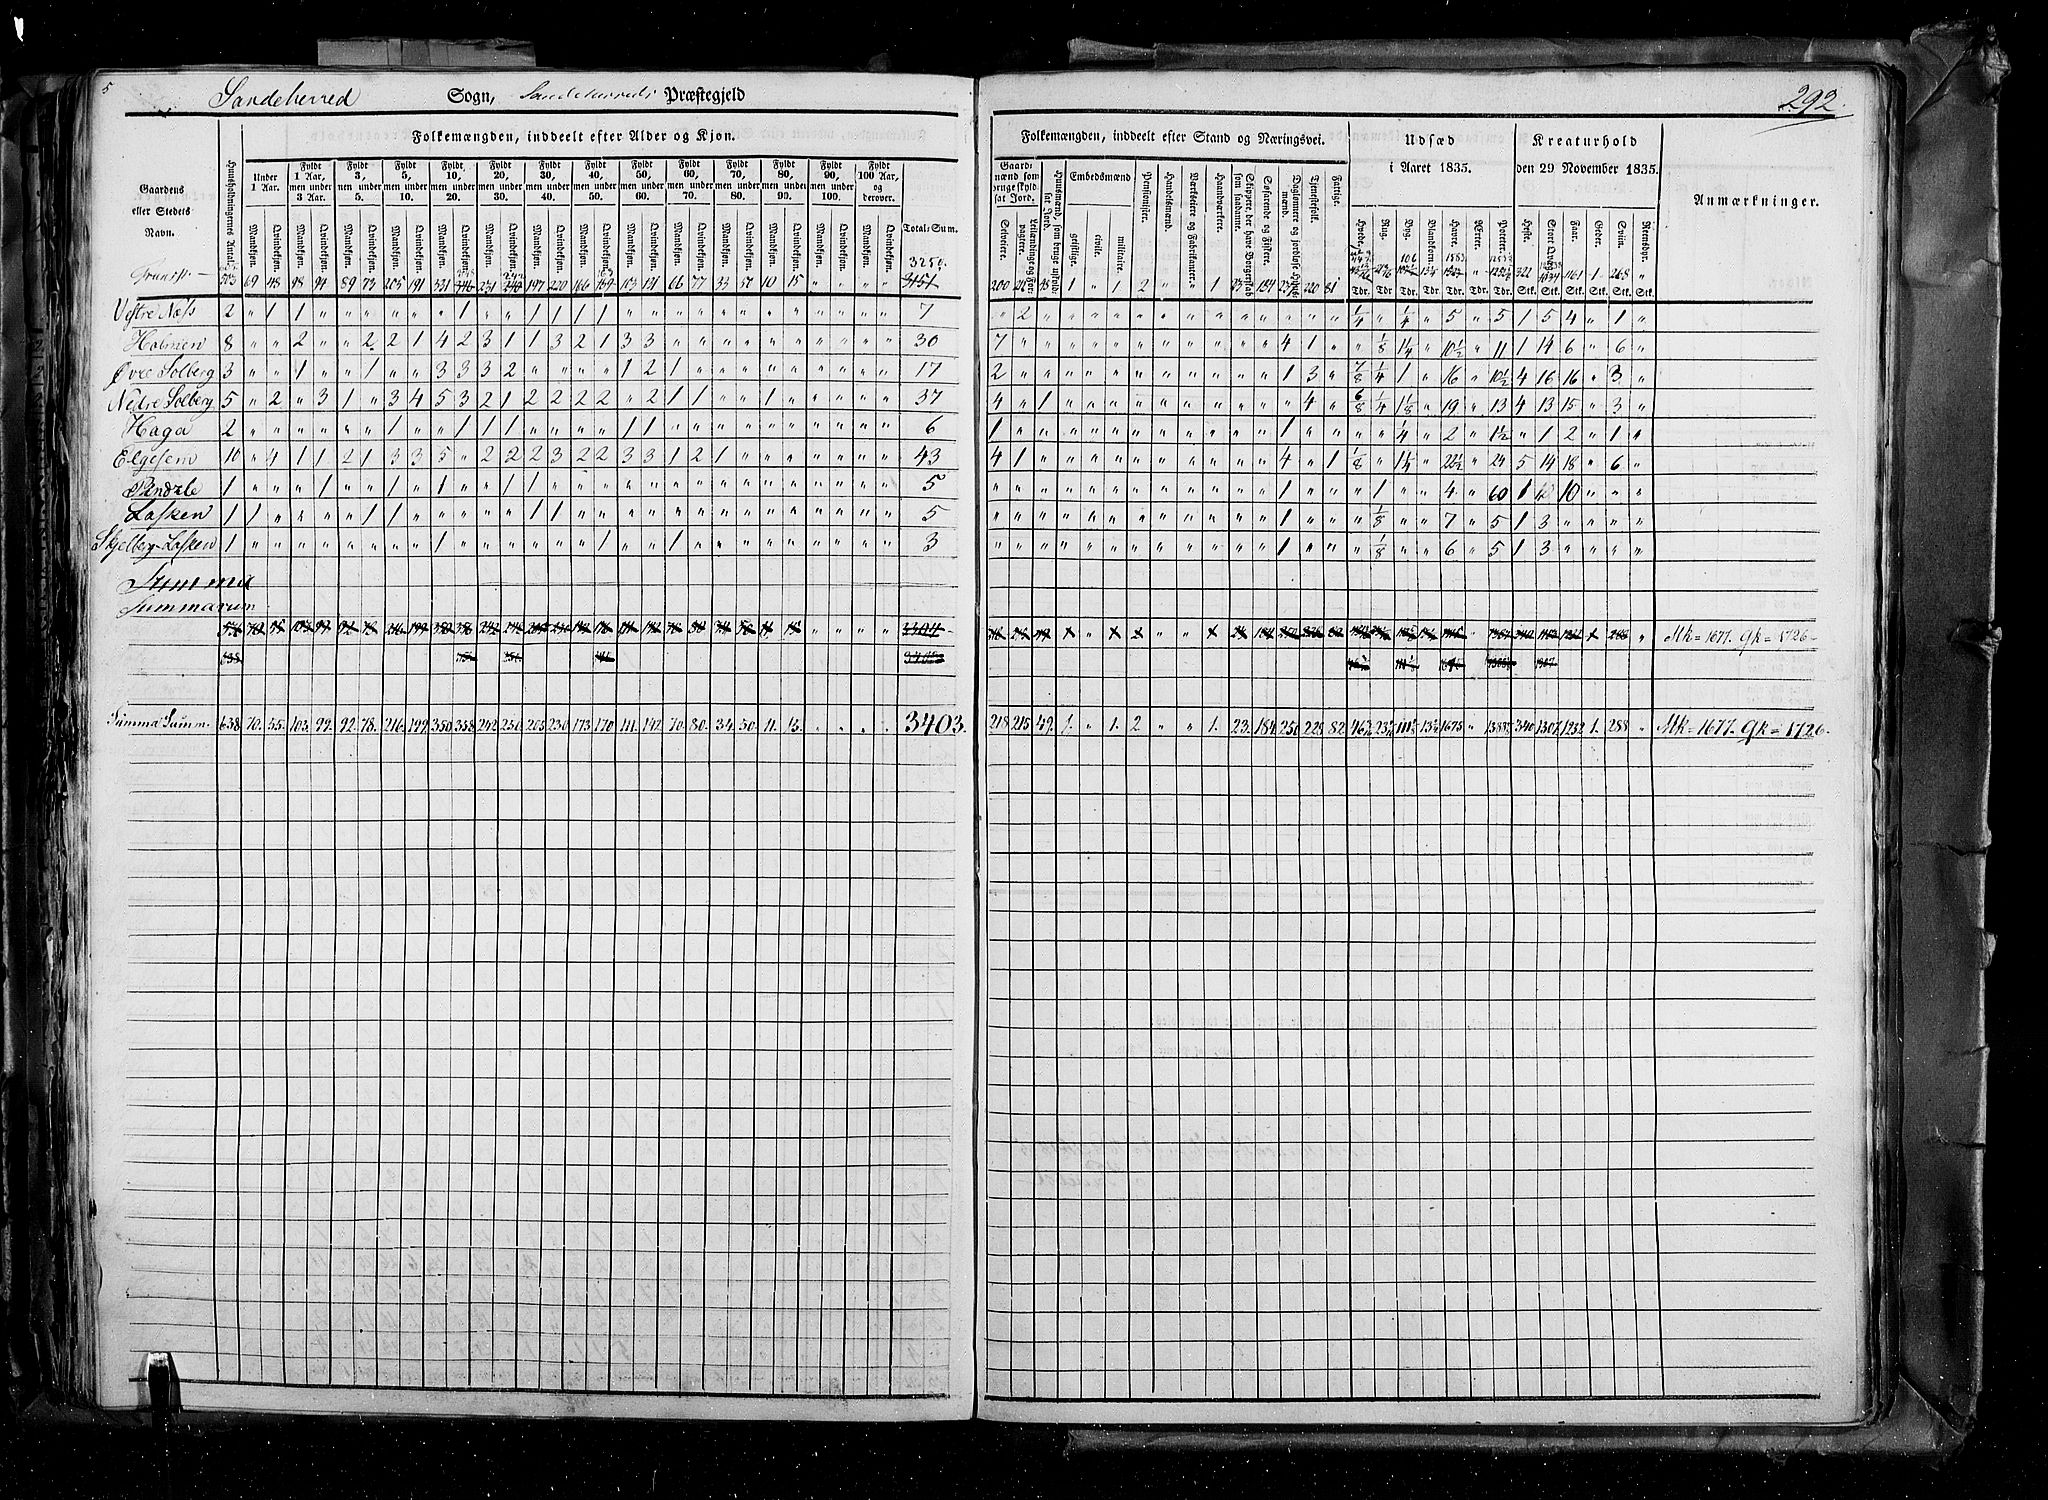 5
Sandeherred Sogn, Sandeherreds Præstegjeld
292.
Gaardens eller Stedets Navn.
Huusholdningernes Antal.
Folkemængden, inddeelt efter Alder og Kjøn.
Under 1 Aar.
Fyldt 1 Aar, men under 3 Aar.
Fyldt 3, men under 5.
Fyldt 5, men under 10.
Fyldt 10, men under 20.
Fyldt 20, men under 30.
Fyldt 30, men under 40.
Fyldt 40, men under 50.
Fyldt 50, men under 60.
Fyldt 60, men under 70.
Fyldt 70, men under 80.
Fyldt 80, men under 90.
Fyldt 90, men under 100.
Fyldt 100 Aar, og derover.
Mandkjøn. Qvindekjøn.
Total-Sum.
Folkemængden, inddeelt efter Stand og Næringsvei.
Gaardmænd som bruge skyldsat Jord.
Selveiere.
Leilændinge og Forpagtere.
Huusmænd, som bruge uskyldsat Jord.
Embedsmænd
geistlige.
civile.
militaire.
Pensionister.
Handelsmænd.
Værkeiere og Fabrikanter.
Haandværkere.
Skippere, der have Borgerskab som saadanne.
Søfarende og Fiskere.
Daglønnere og jordløse Huusmænd.
Tjenestefolk.
Fattige.
Udsæd i Aaret 1835.
Hvede.
Rug.
Byg.
Blandkorn.
Havre.
Ærter.
Poteter.
Tdr. Tdr. Tdr. Tdr. Tdr. Tdr. Tdr.
Kreaturhold den 29 November 1835.
Heste.
Stort Qvæg.
Faar.
Geder.
Sviin.
Reensdyr.
Stk. Stk. Stk. Stk. Stk. Stk.
Anmærkninger.
Transp. 69 48 98 94 89 73 205 191 331 231 197 220 166 103 131 66 77 33 51 10 15 " " " " 3250 3451
Vestre Næss 2 " 1 1 " " " " " " 1 " " 1 1 1 1 " " " " " " " " " " " " 7 " 2 " " " " " " " " " " " " " 1/4 " 1/4 " 5 " 5 1 5 4 " 1 "
Holmen 8 " " 2 " " 2 2 1 4 2 3 1 1 3 2 1 3 3 " " " " " " " " " " 30 7 " " " " " " " " " " " 4 1 " " 1/8 1 1/4 " 10 1/2 " 11 1 14 6 " 6 "
Øvre Solberg 3 " " 1 " " 1 " " 3 3 3 2 " " " " 1 2 1 " " " " " " " " " 17 2 " " " " " " " " " " " 1 3 " 7/8 1/4 1 " 16 " 10 1/2 4 16 16 " 3 "
Nedre Solberg 5 " 2 " 3 1 " 3 4 5 3 2 1 2 2 2 2 " 2 1 1 " " 1 " " " " " 37 4 " 1 " " " " " " " " " " 4 " 6/8 1/4 1 1/8 " 19 " 13 4 13 15 " 3 "
Haga 2 " " " " " " 1 " " 1 1 1 " " " " 1 1 " " " " " " " " " " 6 1 " " " " " " " " " " " 1 " " " " 1/4 " 2 " 1 1/2 " 1 2 " 1 "
Elgesem 10 " 4 1 1 2 1 3 3 5 " 2 2 2 3 2 2 3 3 1 2 1 " " " " " " " 43 4 1 " " " " " " " " " " 4 " 1 1/8 " 1 1/4 " 22 1/2 " 24 5 14 18 " 6 "
Pindsle 1 " " " 1 " " 1 " 1 " " 1 1 " " " " " " " " " " " " " " " 5 " " " " " " " " " " " " 1 " " " 1 " " 4 " 60 1 10 10 " " "
Lasken 1 1 " " " " 1 1 " " " " " 1 1 " " " " " " " " " " " " " " 5 " " " " " " " " " " " " 1 " " " 1/8 " " 7 " 5 1 3 " " " "
Skjelberg-Lasken 1 " " " " " " " " 1 " " " " " " 1 " " 1 " " " " " " " " " 3 " " " " " " " " " " " " 1 " " " 1/8 " " 6 " 5 1 3 " " " "
Summa
Summarum
Mk = 1677. Qk = 1726
Summa Summ. 638 70. 55. 103. 99. 92. 78. 216. 199. 350 358 242 250 205 230 173 170 111. 142 70. 80. 34. 50. 11. 15. " " " " 3403. 218 215 49. 1. " 1. 2. " " 1. 23. 184. 250 229 82. 1675 " 340 1307. 1232 1. 288 " Mk = 1677. Qk = 1726.